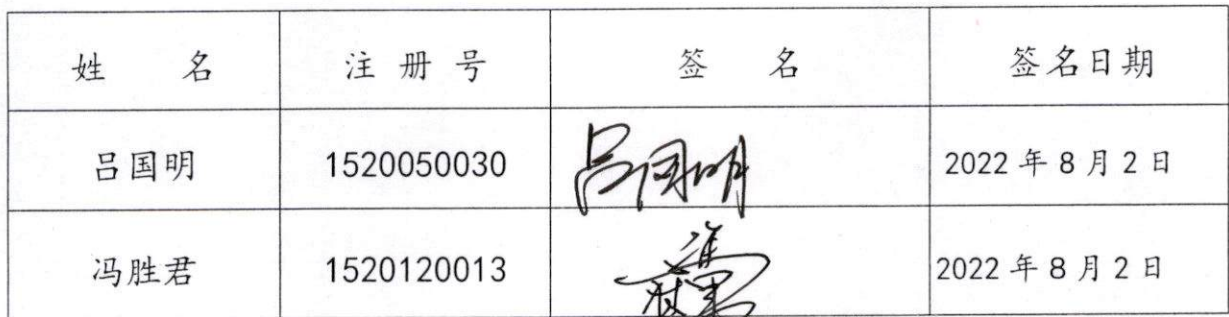 姓 名 注册号 签 名 签名日期
吕国明 1520050030 吕国明 2022年8月2日
冯胜君 1520120013 2022年8月2日